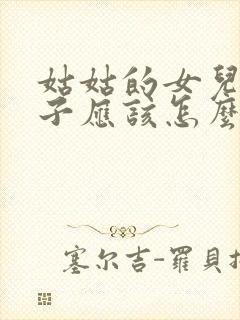 姑姑的女兒
子應該怎麼
塞尔吉-羅貝托